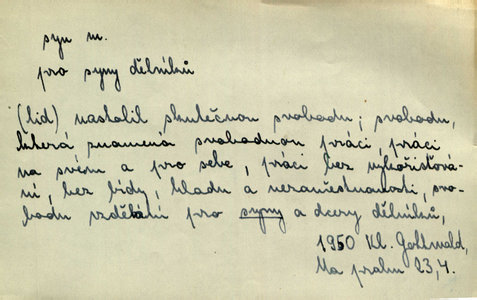 syn m.
pro syny dělníků
(lid) nastolil skutečnou svobodu; svobodu,
která znamená svobodnou práci, práci
na svém a pro sebe, práci bez vykořisťová-
ní, bez bídy, hladu a nezaměstnanosti, svo-
bodu vzdělání pro syny a dcery dělníků,
1950 Kl. Gottwald,
Na prahu 23,4.